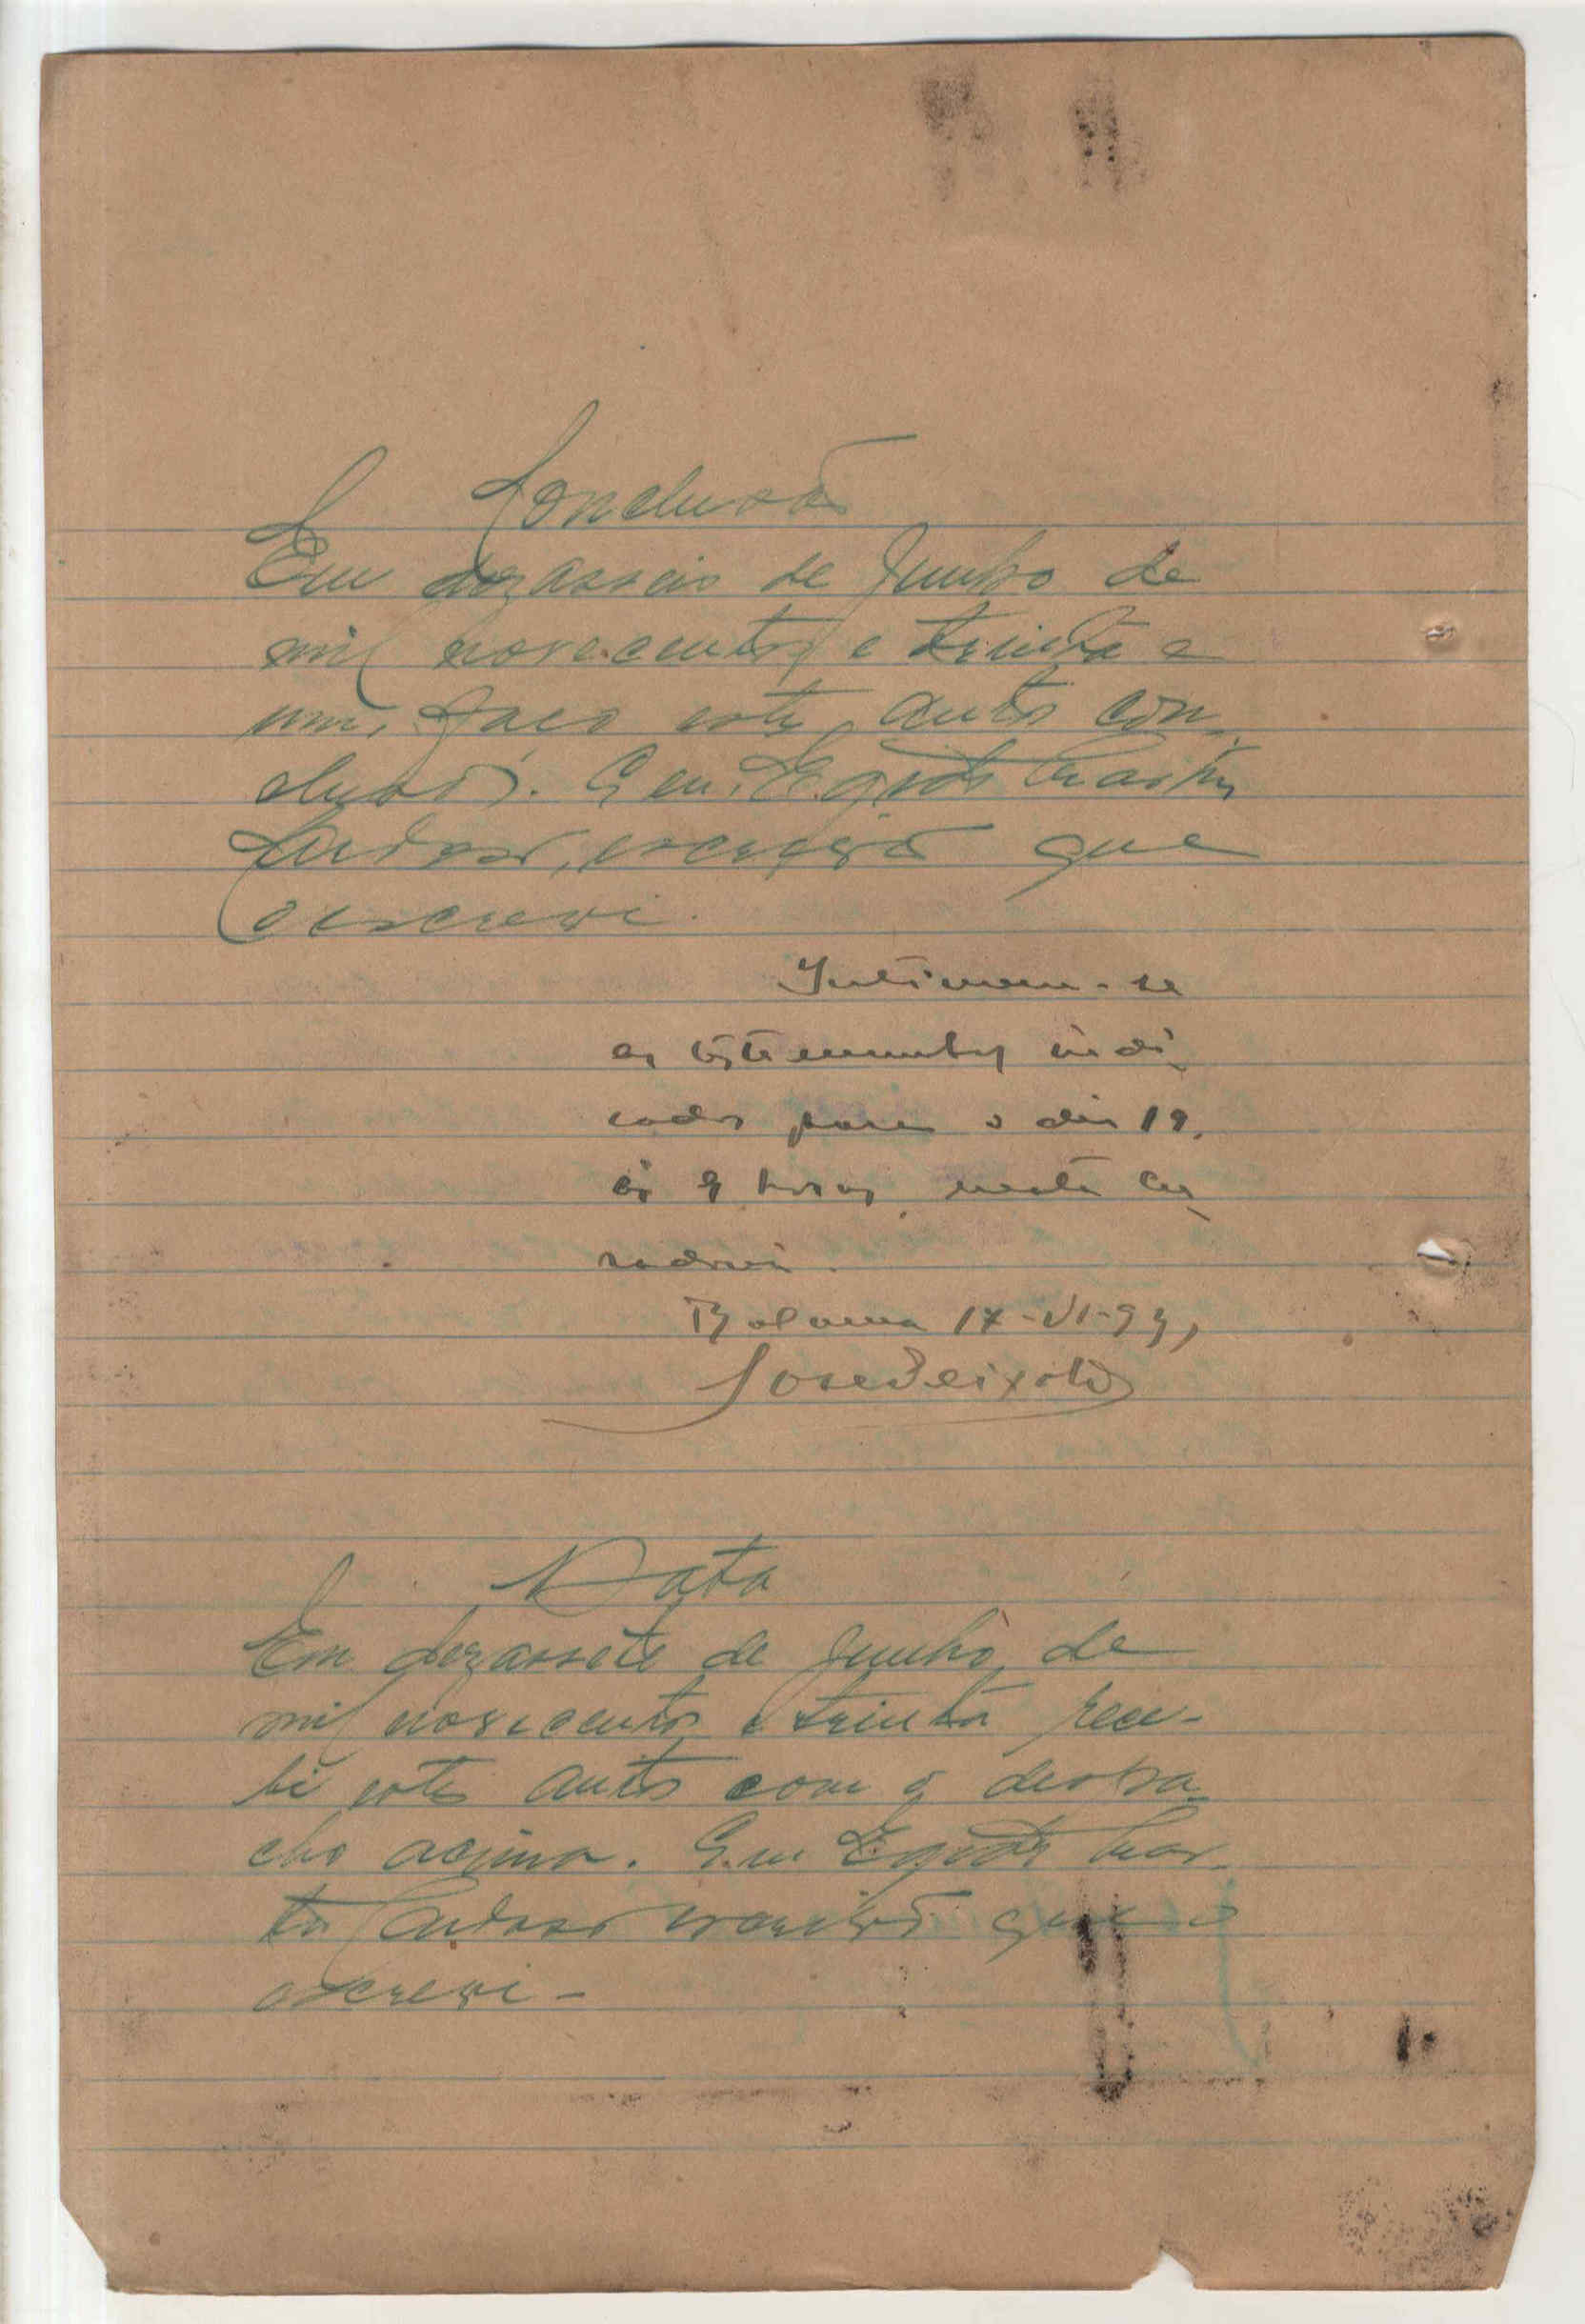 Conclusão
Em dezasseis de Junho de
mil novecentos e trinta e
um, faço estes autos con-
clusos. E eu,
Cardoso, escrivão que
o escrevi.
Intimem-se
as testemunhas indi-
cadas para o dia 19,
ás 9 horas, nesta Cu-
radoria.
Bolama 17-VI-931,
José Peixoto
Data
Em dezassete de Junho de
mil novecentos e trinta rece-
bi estes autos com o despa-
cho acima. E eu
Cardoso escrivão que o
escrevi-